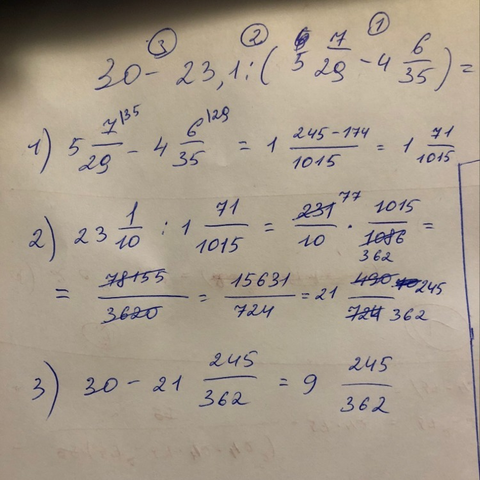 ③ ② ①
30 - 23,1 : ( 5 7/29 - 4 6/35 ) =
1) 5 7/29 |35 - 4 6/35 |29 = 1 245-174/1015 = 1 71/1015
2) 23 1/10 : 1 71/1015 = 231/10 77 · 1015/1086 362 =
= 78155/3620 = 15631/724 = 21 490/724 245 362
3) 30 - 21 245/362 = 9 245/362